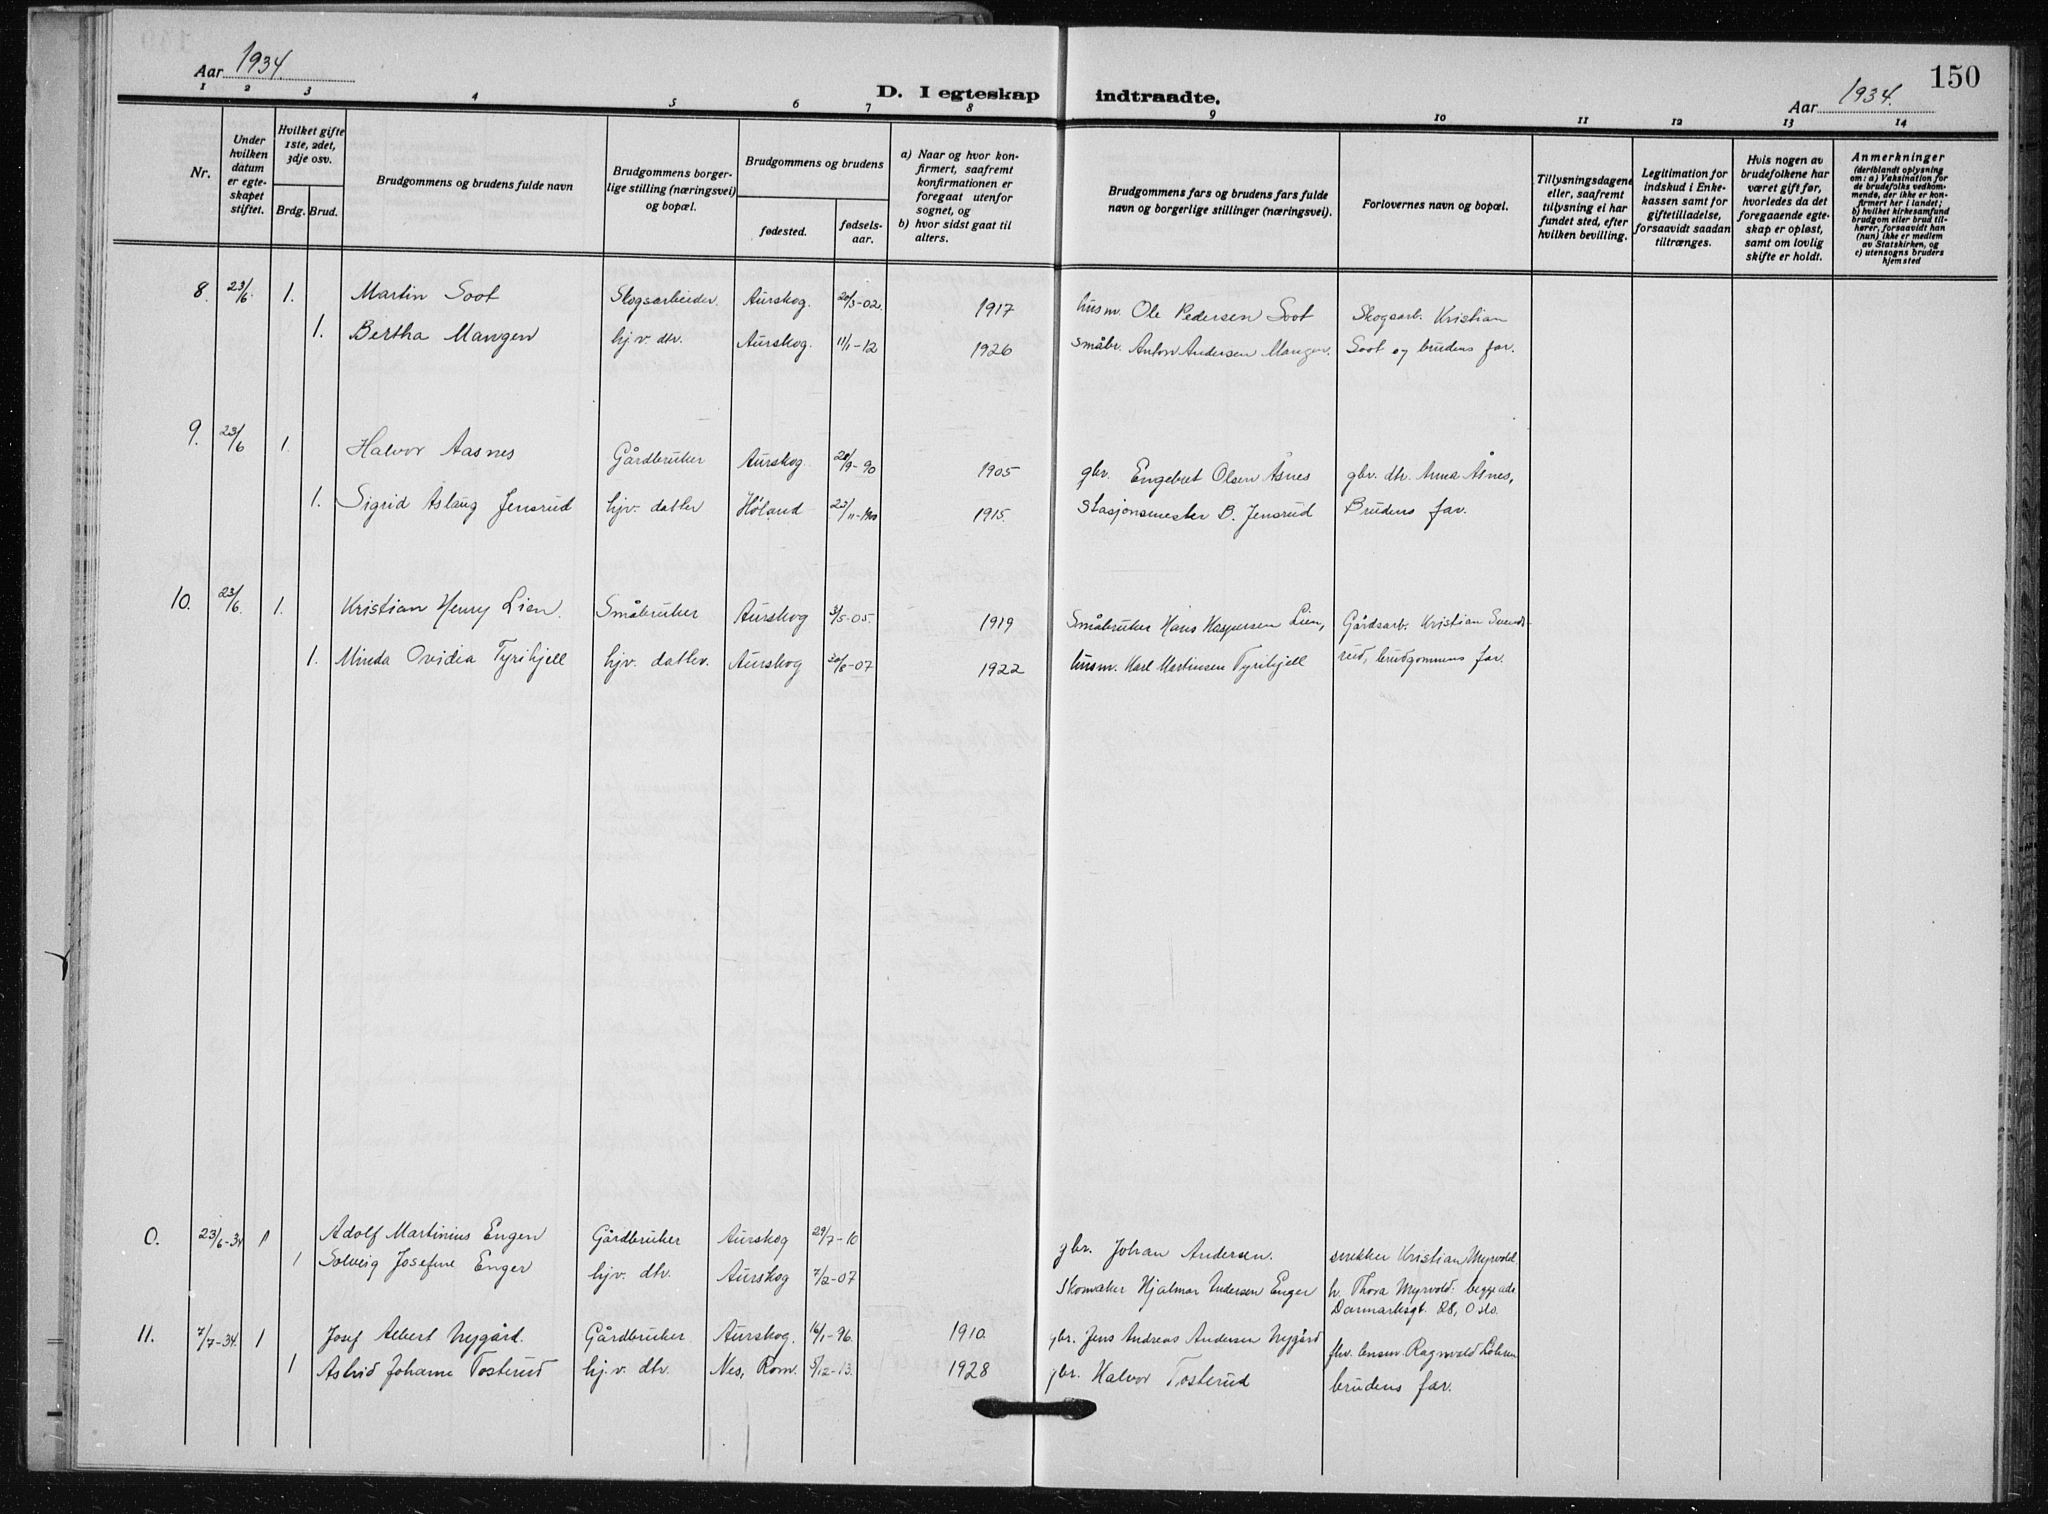 150
Aar 1934.
D. I egteskap indtraadte.
Aar 1934.
1 2 3 4 5 6 7 8 9 10 11 12 13 14
Nr.
Under hvilken datum er egteskapet stiftet.
Hvilket gifte 1ste, 2det, 3dje osv.
Brdg. Brud.
Brudgommens og brudens fulde navn
Brudgommens borgerlige stilling (næringsvei) og bopæl.
Brudgommens og brudens
fødested.
fødselsaar.
a) Naar og hvor konfirmert, saafremt konfirmationen er foregaat utenfor sognet, og
b) hvor sidst gaat til alters.
Brudgommens fars og brudens fars fulde navn og borgerlige stillinger (næringsvei).
Forlovernes navn og bopæl.
Tillysningsdagene eller, saafremt tillysning ei har fundet sted, efter hvilken bevilling.
Legitimation for indskud i Enkekassen samt for giftetilladelse, forsaavidt saadan tiltrænges.
Hvis nogen av brudefolkene har været gift før, hvorledes da det foregaaende egteskap er opløst, samt om lovlig skifte er holdt.
Anmerkninger (deriblandt oplysning om: a) Vaksination for de brudefolks vedkommende, der ikke er konfirmert her i landet; b) hvilket kirkesamfund brudgom eller brud tilhører, forsaavidt han (hun) ikke er medlem av Statskirken, og c) utensogns bruders hjemsted
8. 23/6. 1. Martin Soot Skogsarbeider. Aurskog. 20/3-02. 1917 husm. Ole Pedersen Soot Skogsarb. Kristian
1. Bertha Mangen hj.v. dtr. Aurskog. 11/1-12 1926 småbr. Anton Andersen Mangen. Soot og brudens far.
9. 23/6 1. Halvor Aasnes Gårdbruker Aurskog 20/9-90 1905 gbr. Engebret Olsen Åsnes gbr. dtr. Anna Åsnes,
1. Sigrid Aslaug Jensrud hjv. datter Høland 1915. Stasjonsmester B. Jensrud Brudens far.
10. 23/6. 1. Kristian Henry Lien. Småbruker Aurskog 3/5-05. 1919 Småbruker Hans Kaspersen Lien, Gårdsarb. Kristian Svends-
1. Minda Ovidia Tyrihjell hjv. datter. Aurskog 30/8-07 1922 husm. Karl Martinsen Tyrihjell rud, brudgommens far.
0. 23/6-34 1 Adolf Martinius Engen Gårdbruker Aurskog 29/7-10 gbr. Johan Andersen. snekker Kristian Myrvold
1 Solveig Josefine Enger hjv. dtr. Aurskog 7/2-07 Skomaker Hjalmar Andersen Enger h. Thora Myrvold: begge adr.
Danmarksgt. 28, Oslo.
11. 7/7-34. 1 Josef Albert Nygård. Gårdbruker. Aurskog. 16/1-96. 1910. gbr. Jens Andreas Andersen Nygård Ragnvald
1 Astrid Johanne Tosterud hj.v. dtr. Nes, Rom. 5/12-13. 1928 gbr. Halvor Tosterud brudens far.